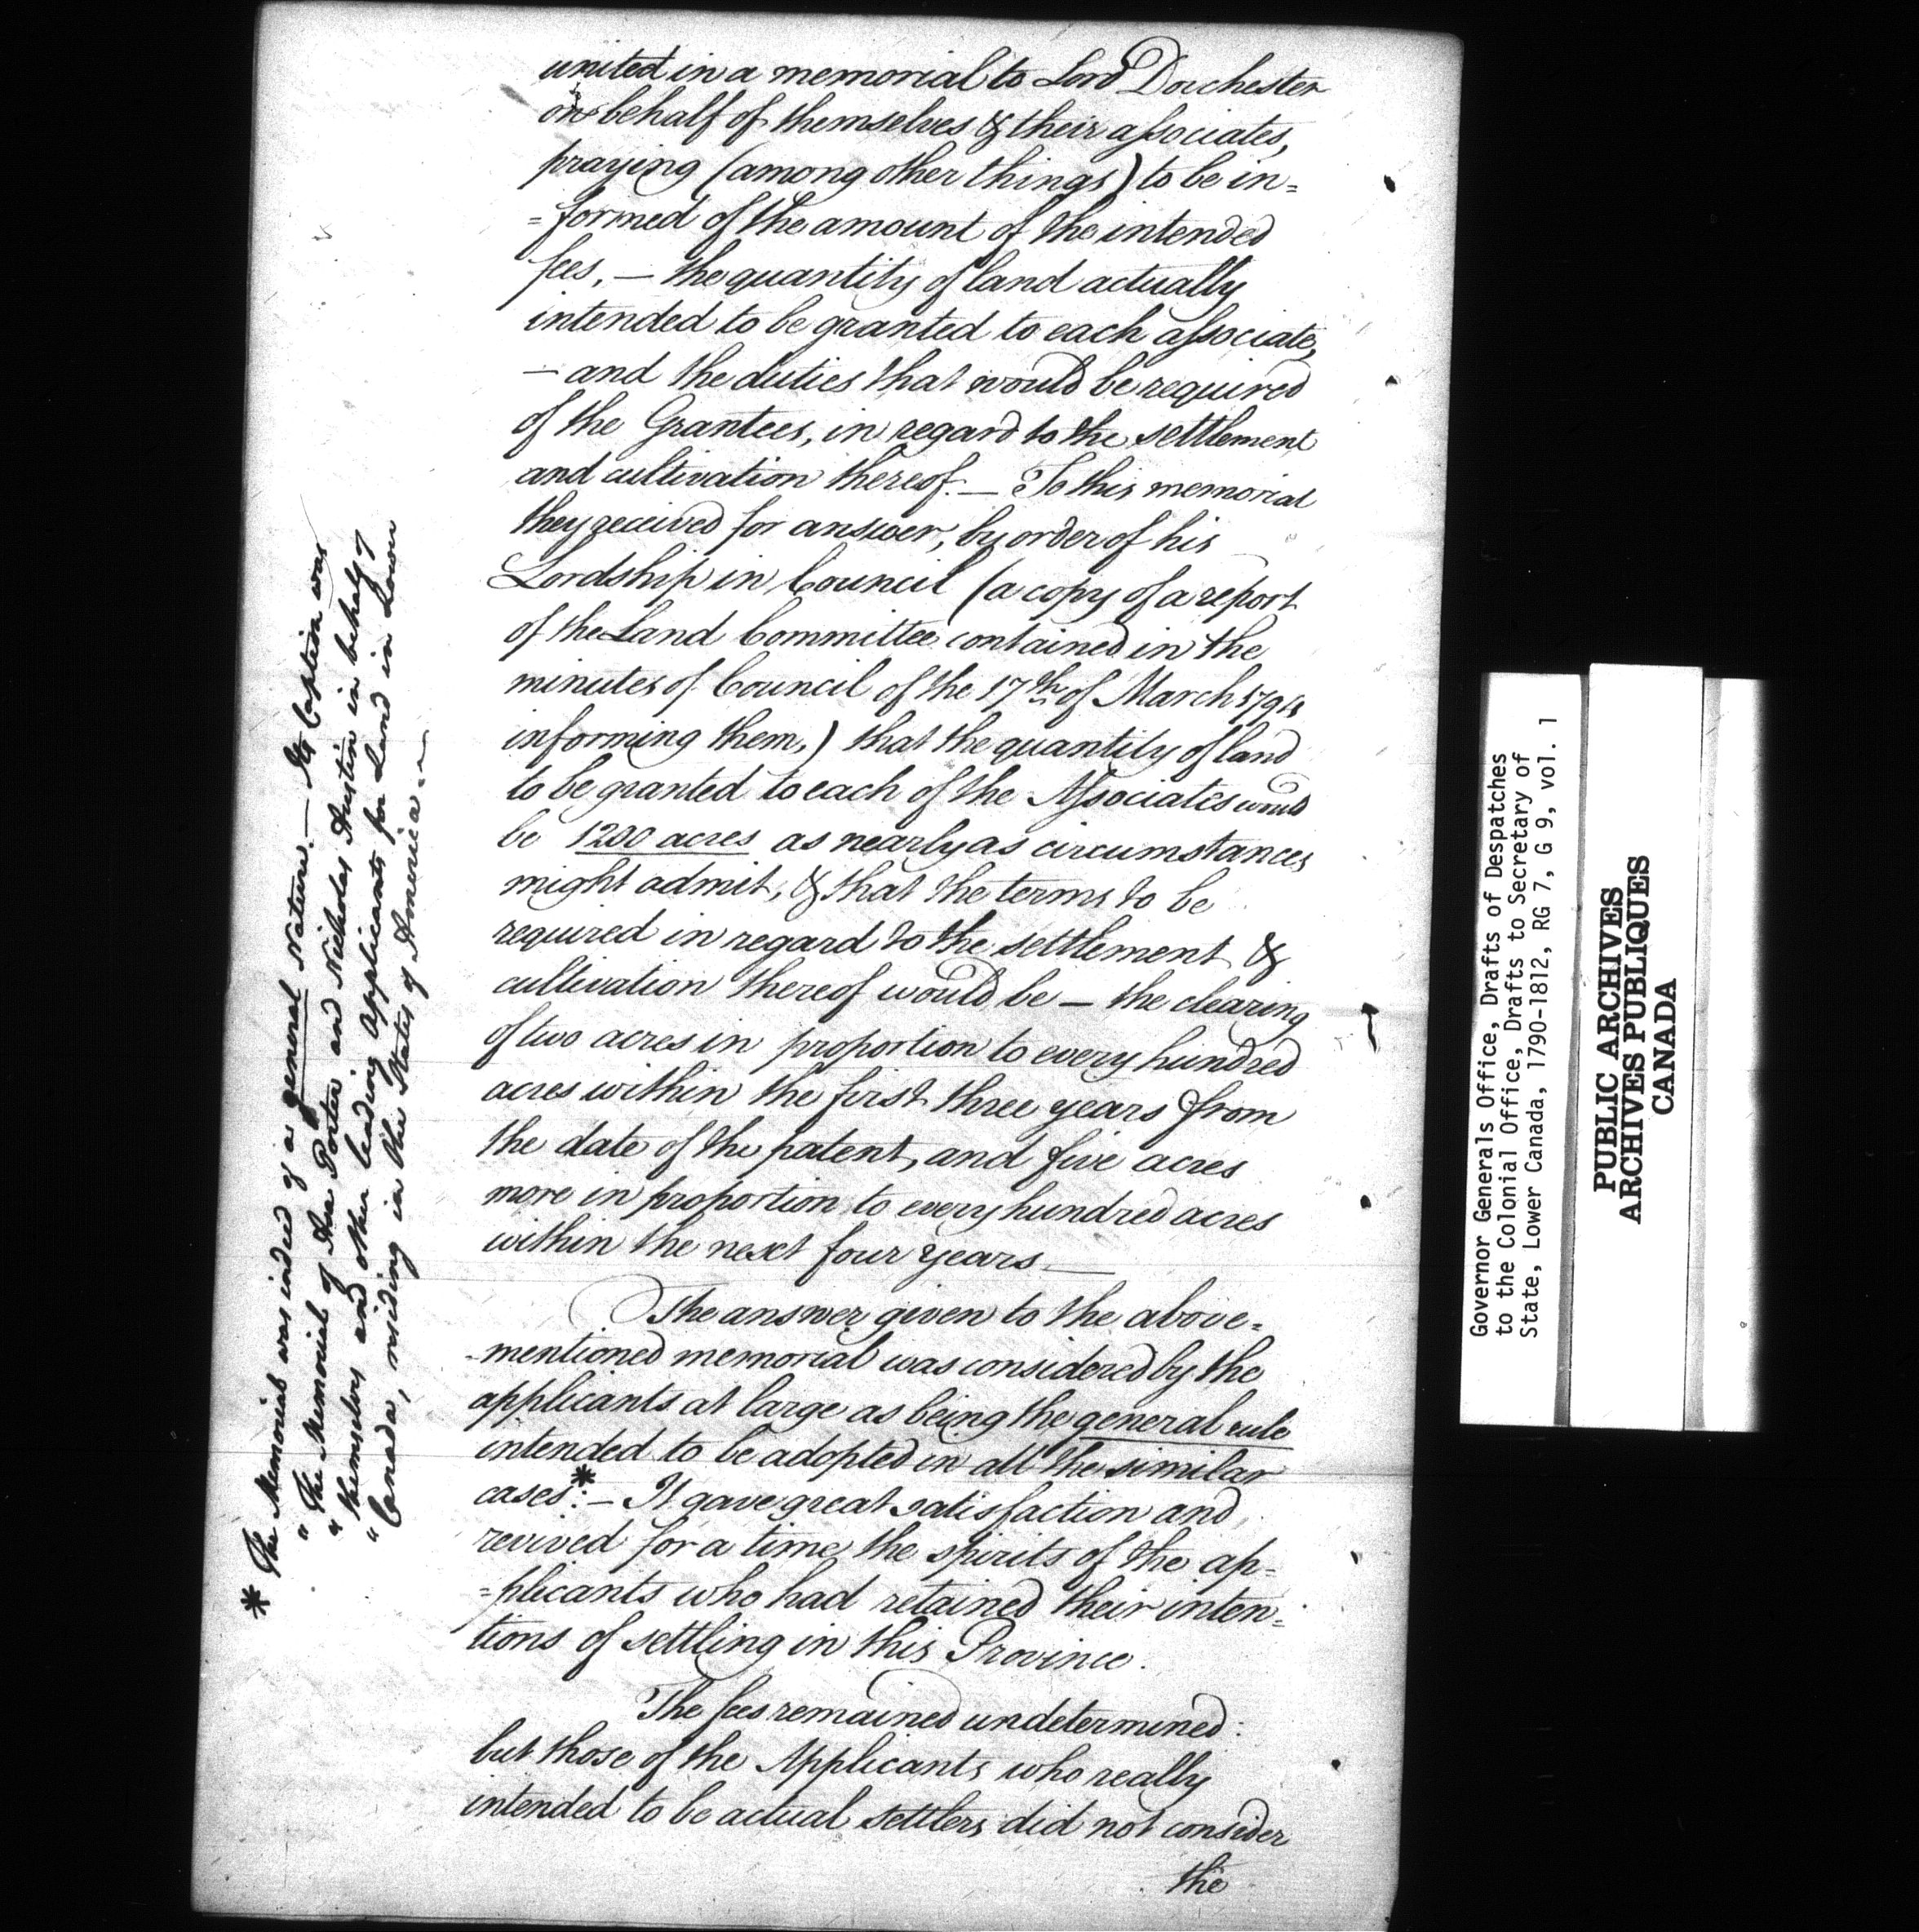 united in a memorial to Lord Dorchester
in behalf of themselves & their associates,
praying (among other things) to be in=
=formed of the amount of the intended
fees, — the quantity of land actually
intended to be granted to each associate,
— and the duties that would be required
of the Grantees, in regard to the settlement
and cultivation thereof. — To this memorial
they received for answer, by order of his
Lordship in Council (a copy of a report
of the Land Committee contained in the
minutes of Council of the 17th of March 1794
informing them,) that the quantity of land
to be granted to each of the Associates would
be 1200 acres as nearly as circumstances
might admit, & that the terms to be
required in regard to the settlement &
cultivation thereof would be — the clearing
of two acres in proportion to every hundred
acres within the first three years from
the date of the patent, and five acres
more in proportion to every hundred acres
within the next four years —
The answer given to the above=
-mentioned memorial was considered by the
applicants at large as being the general rule
intended to be adopted in all the similar
cases*: — It gave great satisfaction and
revived for a time the spirits of the ap=
=plicants who had retained their inten=
tions of settling in this Province.
The fees remained undetermined:
but those of the Applicants who really
intended to be actual settlers did not consider
the
* The Memorial was indeed of a general Nature. — Its Caption was
" The Memorial of Ira Porter and Nicholas Austin in behalf of
" themselves and other leading Applicants for Land in Lower
" Canada, residing in the States of America. —
Governor Generals Office, Drafts of Despatches
to the Colonial Office, Drafts to Secretary of
State, Lower Canada, 1790-1812, RG 7, G 9, vol. 1
PUBLIC ARCHIVES
ARCHIVES PUBLIQUES
CANADA